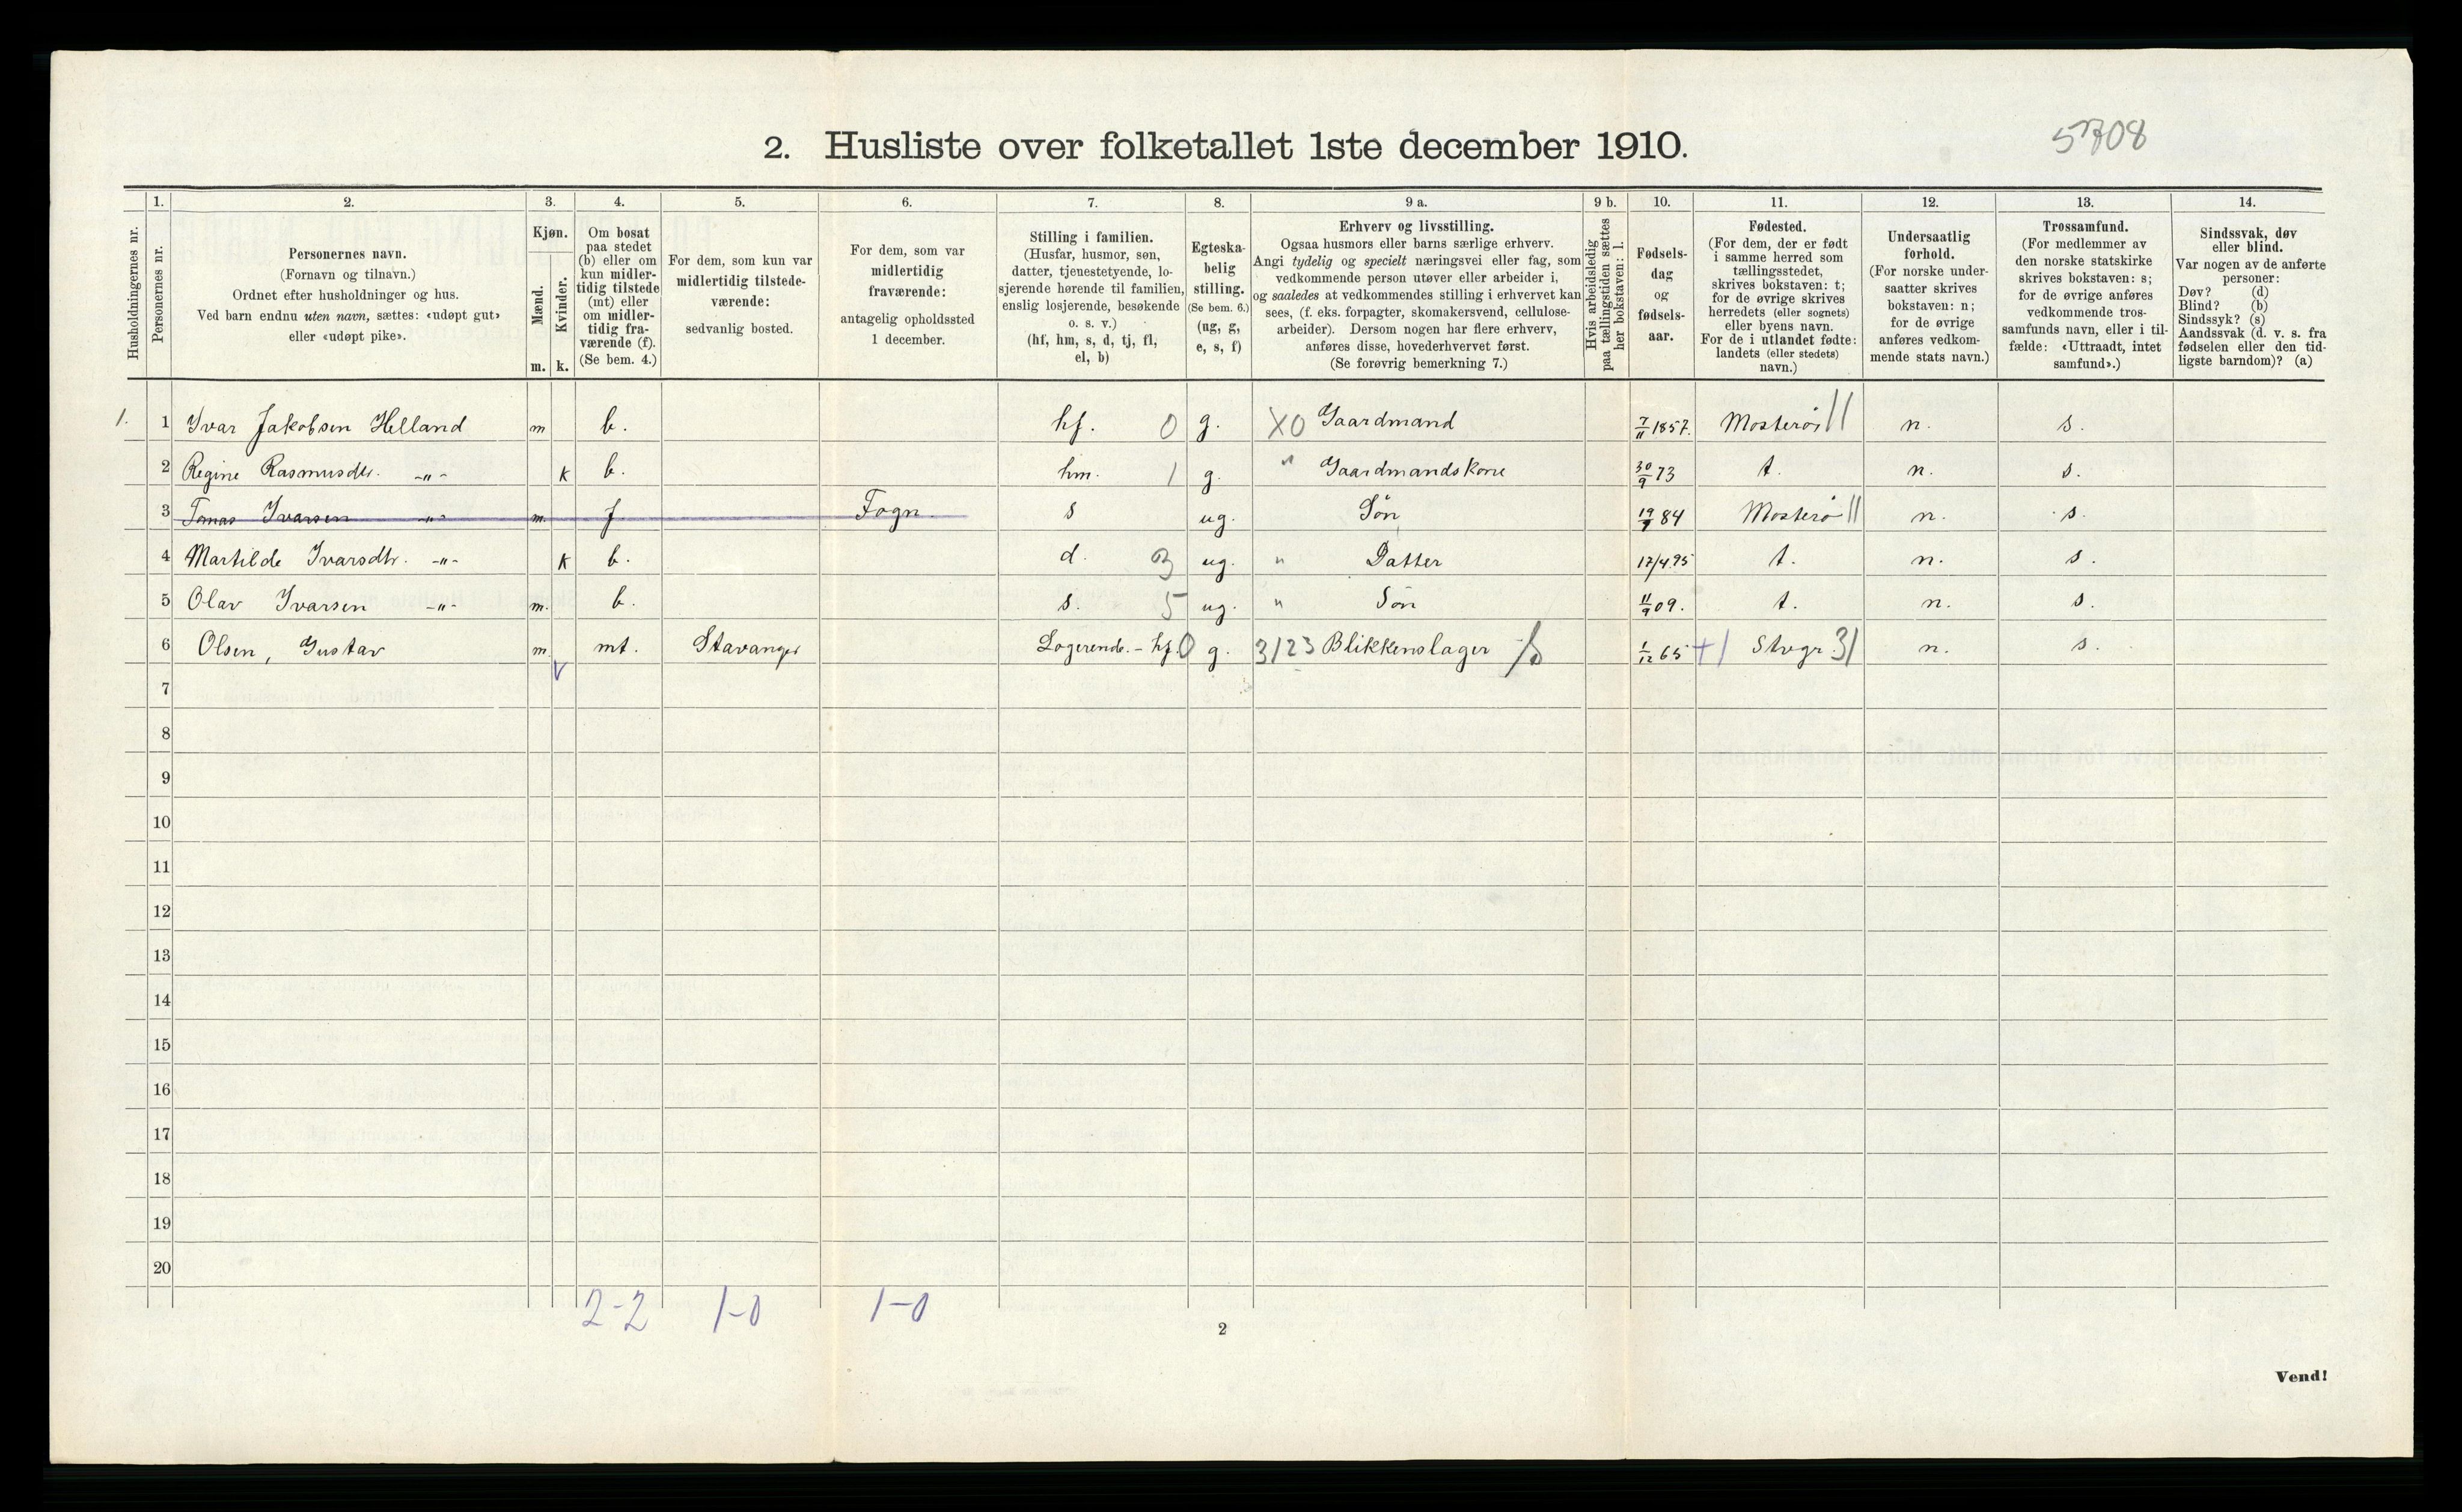 2. Husliste over folketallet 1ste december 1910.
5708
Husholdningernes nr.
1.
Personernes nr.
2.
Personernes navn.
(Fornavn og tilnavn.)
Ordnet efter husholdninger og hus.
Ved barn endnu uten navn, sættes: «udøpt gut»
eller «udøpt pike».
3.
Kjøn.
Mænd.
m.
Kvinder.
k.
4.
Om bosat
paa stedet
(b) eller om
kun midler-
tidig tilstede
(mt) eller
om midler-
tidig fra-
værende (f).
(Se bem. 4.)
5.
For dem, som kun var
midlertidig tilstede-
værende:
sedvanlig bosted.
6.
For dem, som var
midlertidig
fraværende:
antagelig opholdssted
1 december.
7.
Stilling i familien.
(Husfar, husmor, søn,
datter, tjenestetyende, lo-
sjerende hørende til familien,
enslig losjerende, besøkende
o. s. v.)
(hf, hm, s, d, tj, fl,
el, b)
8.
Egteska-
belig
stilling.
(Se bem. 6.)
(ug, g,
e, s, f)
9 a.
Erhverv og livsstilling.
Ogsaa husmors eller barns særlige erhverv.
Angi tydelig og specielt næringsvei eller fag, som
vedkommende person utøver eller arbeider i,
og saaledes at vedkommendes stilling i erhvervet kan
sees, (f. eks. forpagter, skomakersvend, cellulose-
arbeider). Dersom nogen har flere erhverv,
anføres disse, hovederhvervet først.
(Se forøvrig bemerkning 7.)
9 b.
Hvis arbeidsledig
paa tællingstiden sættes
her bokstaven: l.
10.
Fødsels-
dag
og
fødsels-
aar.
11.
Fødested.
(For dem, der er født
i samme herred som
tællingsstedet,
skrives bokstaven: t;
for de øvrige skrives
herredets (eller sognets)
eller byens navn.
For de i utlandet fødte:
landets (eller stedets)
navn.)
12.
Undersaatlig
forhold.
(For norske under-
saatter skrives
bokstaven: n;
for de øvrige
anføres vedkom-
mende stats navn.)
13.
Trossamfund.
(For medlemmer av
den norske statskirke
skrives bokstaven: s;
for de øvrige anføres
vedkommende tros-
samfunds navn, eller i til-
fælde: «Uttraadt, intet
samfund».)
14.
Sindssvak, døv
eller blind.
Var nogen av de anførte
personer:
Døv? (d)
Blind? (b)
Sindssyk? (s)
Aandssvak (d. v. s. fra
fødselen eller den tid-
ligste barndom)? (a)
1. 1 Ivar Jakobsen Helland m b. hf. 0 g. X0 Gaardmand 7/11 1857. Mosterøi || n. s.
2 Regine Rasmusdtr. -"- k b. hm. 1 g. " Gaardmandskone 30/9 73 t. n. s.
3 Tomas Ivarsen -"- m. f Fogn. s ug. Søn 19/9 84 Mosterø || n. s.
4 Martilde Ivarsdtr. -"- k b. d. 3 ug. " Datter 17/4.95 t. n. s.
5 Olav Ivarsen -"- m. b. s. 5 ug. " Søn 11/9 09. t. n. s.
6 Olsen, Gustav m. mt. Stavanger Logerende. - hf. 0 g. 3123 Blikkenslager 1/12 65 +1 Stvgr. 31 n. s.
7
8
9
10
11
12
13
14
15
16
17
18
19
20
2-2 1-0 1-0
2
Vend!